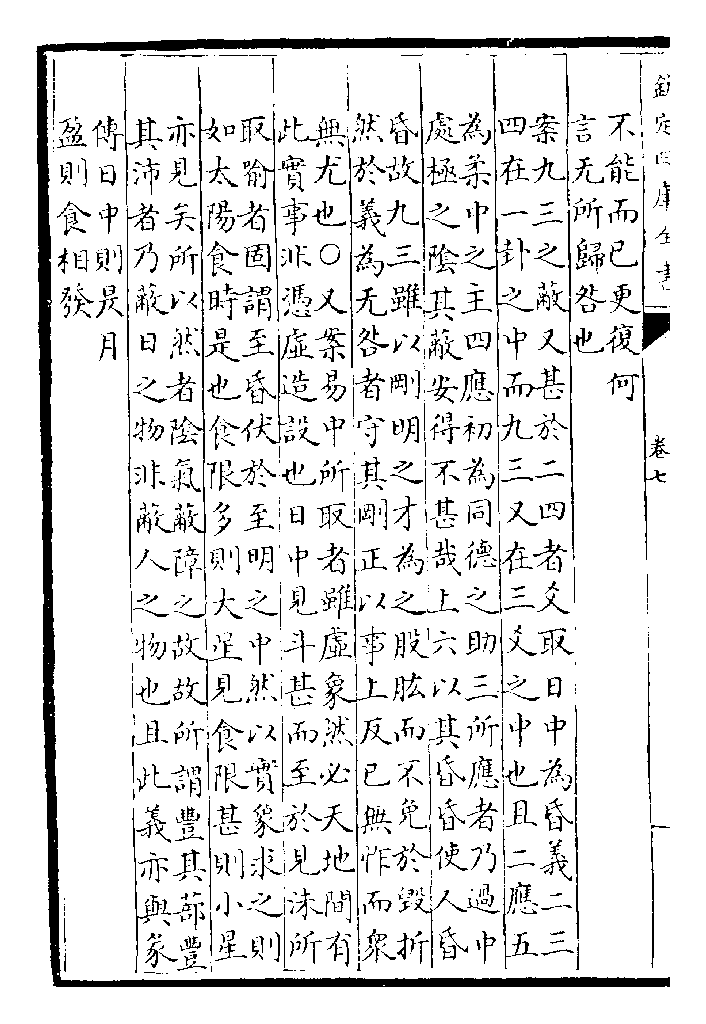 欽定四庫全書
卷七
不能而已更復何
言无所歸咎也
案九三之蔽又甚於二四者爻取日中為昏義二三
四在一卦之中而九三又在三爻之中也且二應五
為柔中之主四應初為同德之助三所應者乃過中
處極之陰其蔽安得不甚哉上六以其昏昏使人昏
昏故九三雖以剛明之才為之股肱而不免於毀折
然於義為无咎者守其剛正以事上反已無怍而衆
無尤也○又案易中所取者雖虛象然必天地間有
此實事非憑虛造設也日中見斗甚而至於見沬所
取喻者固謂至昏伏於至明之中然以實象求之則
如太陽食時是也食限多則大星見食限甚則小星
亦見矣所以然者陰氣蔽障之故故所謂豐其蔀豐
其沛者乃蔽日之物非蔽人之物也且此義亦與彖
傳日中則昃月
盈則食相發